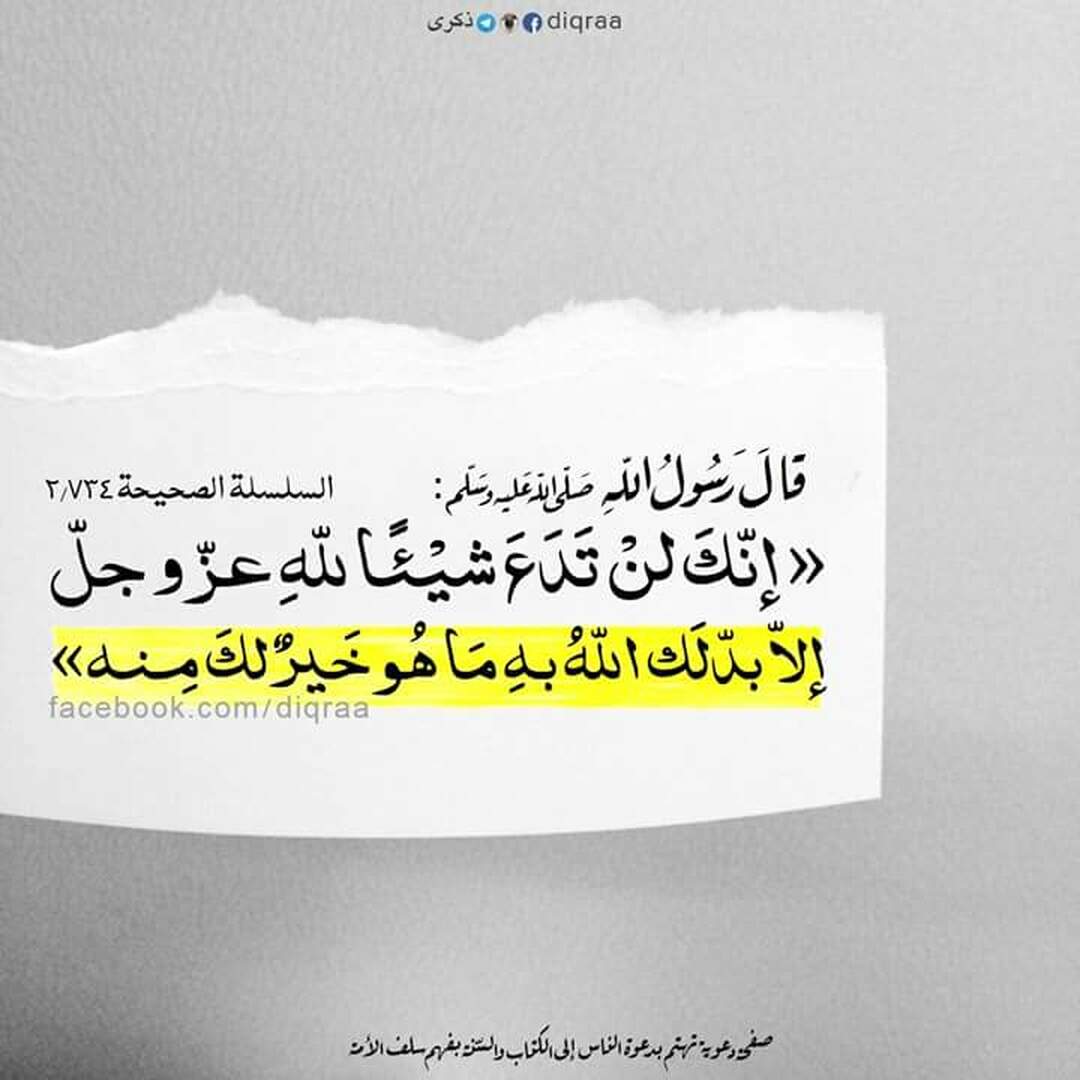 ذكرى diqraa
قَالَ رَسُولُ اللّهِ صَلّى اللّهُ عَليه وسَلّم: السلسلة الصحيحة ٢/٧٣٤
«إِنّكَ لنْ تَدَعَ شيْئًا للّهِ عزّ وجلّ
إلاّ بدّلَك اللّهُ بهِ مَا هُو خَيرٌ لكَ مِنه»
facebook.com/diqraa
صفحة دعوية تهتم بدعوة الناس إلى الكتاب والسنة بفهم سلف الأمة